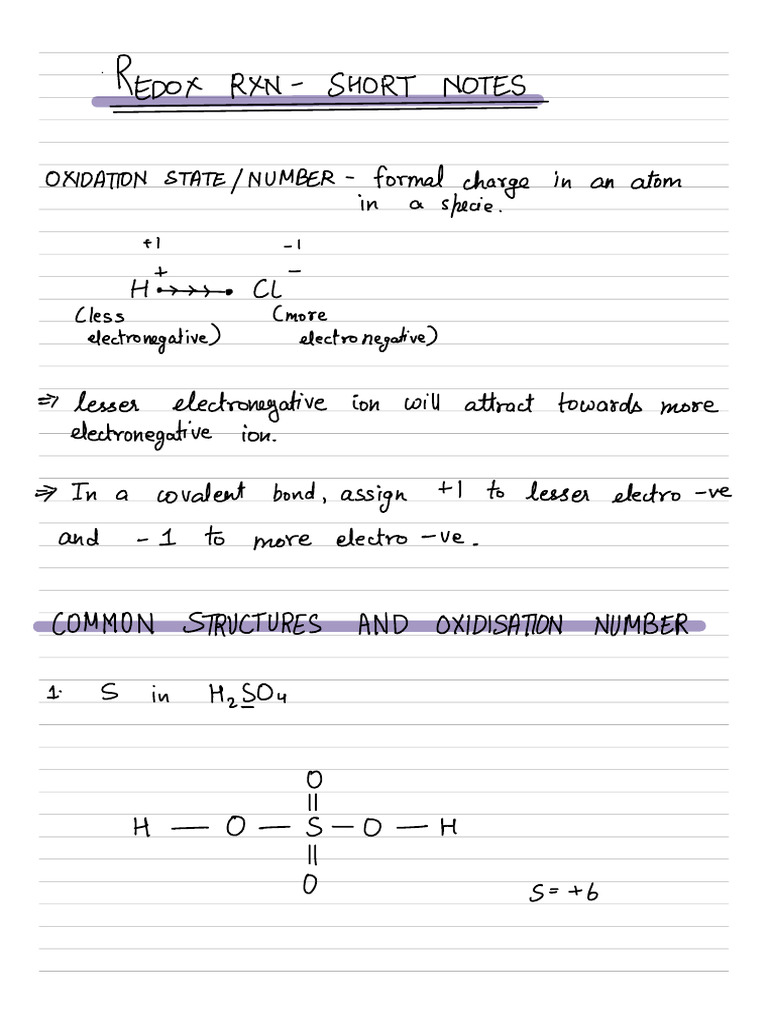 REDOX RXN - SHORT NOTES
OXIDATION STATE/NUMBER - formal charge in an atom
in a specie.
+1 -1
+ -
H Cl
(less (more
electronegative) electronegative)
⇒ lesser electronegative ion will attract towards more
electronegative ion.
⇒ In a covalent bond, assign +1 to lesser electro -ve
and -1 to more electro -ve.
COMMON STRUCTURES AND OXIDISATION NUMBER
1. S in H₂SO₄
O
||
H — O — S — O — H
||
O
S = +6